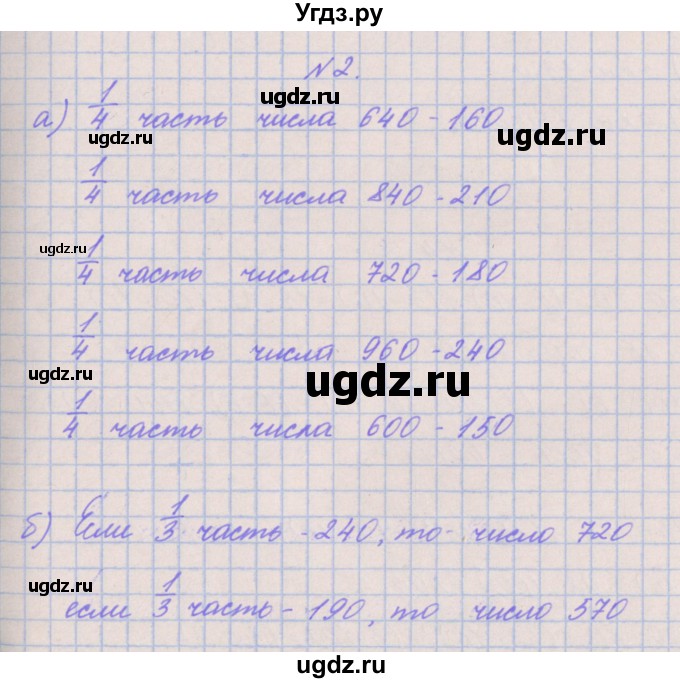 Угдз.ру
№2.
ugdz.ru
а) 1/4 часть числа 640 - 160
ugdz.ru
1/4 часть числа 840 - 210
ugdz.ru
ugdz.ru
1/4 часть числа 720 - 180
1/4 часть числа 960 - 240
ugdz.ru
ugdz.ru
1/4 часть числа 600 - 150
ugdz.ru
б) Если 1/3 часть - 240, то число 720
ugdz.ru
если 1/3 часть - 190, то число 570
ugdz.ru